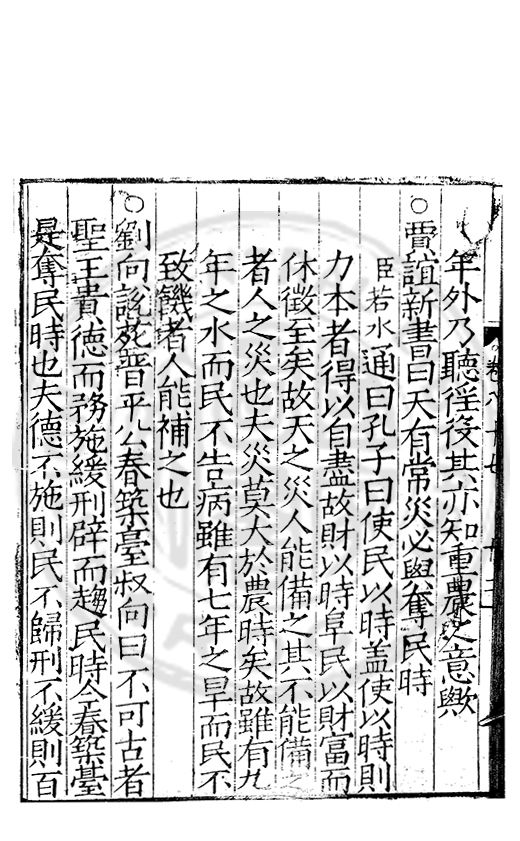 年外乃聽徭役其亦知重農之意歟
○賈誼新書曰天有常災必與奪民時
臣若水通曰孔子曰使民以時盖使以時則
力本者得以自盡故財以時阜民以財富而
休徵至矣故天之災人能備之其不能備之
者人之災也夫災莫大於農時矣故雖有九
年之水而民不告病雖有七年之旱而民不
致饑者人能補之也
○劉向說苑晉平公春築臺叔向曰不可古者
聖王貴德而務施緩刑辟而趨民時今春築臺
是奪民時也夫德不施則民不歸刑不緩則百